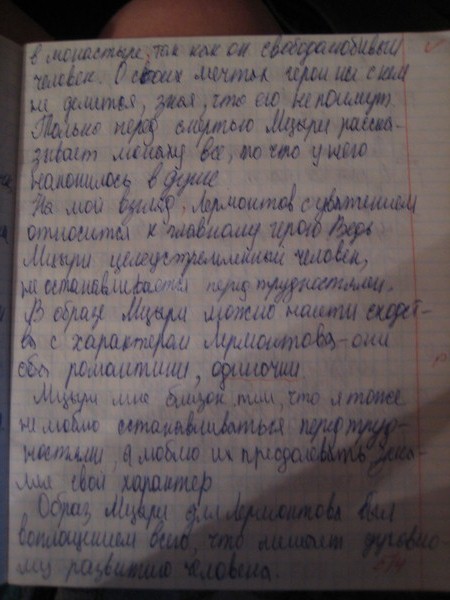 в монастыре, так как он свободолюбивый
человек. О своих мечтах герой ни с кем
не делится, зная, что его не поймут.
Только перед смертью Мцыри расска-
зывает монаху все, то что у него
накопилось в душе
На мой взгляд, Лермонтов с уважением
относится к главному герою. Ведь
Мцыри целеустремленный человек,
не останавливается перед трудностями.
В образе Мцыри можно найти сходст-
ва с характером Лермонтова - они
оба романтики, одиночки.
Мцыри мне близок тем, что я тоже
не люблю останавливаться перед труд-
ностями, а люблю их преодолевать, зака-
ляя свой характер
Образ Мцыри для Лермонтова был
воплощением всего, что мешает духовно-
му развитию человека.
5/4